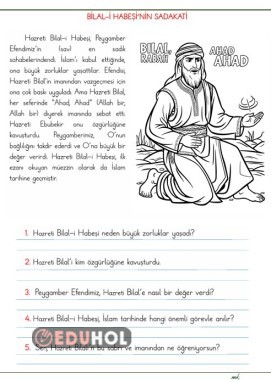 BİLAL-İ HABEŞİ'NİN SADAKATİ
Hazreti Bilal-i Habeşi, Peygamber
Efendimiz'in (sav) en sadık
sahabelerindendi. İslam'ı kabul ettiğinde,
ona büyük zorluklar yaşattılar. Efendisi,
Hazreti Bilal'in imanından vazgeçmesi için
ona çok baskı uyguladı. Ama Hazreti Bilal,
her seferinde "Ahad, Ahad" (Allah bir,
Allah bir) diyerek imanında sebat etti.
Hazreti Ebubekir onu özgürlüğüne
kavuşturdu. Peygamberimiz, O'nun
bağlılığını takdir ederdi ve O'na büyük bir
değer verirdi. Hazreti Bilal-i Habeşi, ilk
ezanı okuyan müezzin olarak da İslam
tarihine geçmiştir.
BILAL,
RABAH
AHAD
AHAD
1. Hazreti Bilal-i Habeşi neden büyük zorluklar yaşadı?
2. Hazreti Bilal'i kim özgürlüğüne kavuşturdu.
3. Peygamber Efendimiz, Hazreti Bilal'e nasıl bir değer verdi?
4. Hazreti Bilal-i Habeşi, İslam tarihinde hangi önemli görevle anılır?
EDUHOL
5. Sen, Hazreti Bilal'in bu sabrı ve imanından ne öğreniyorsun?